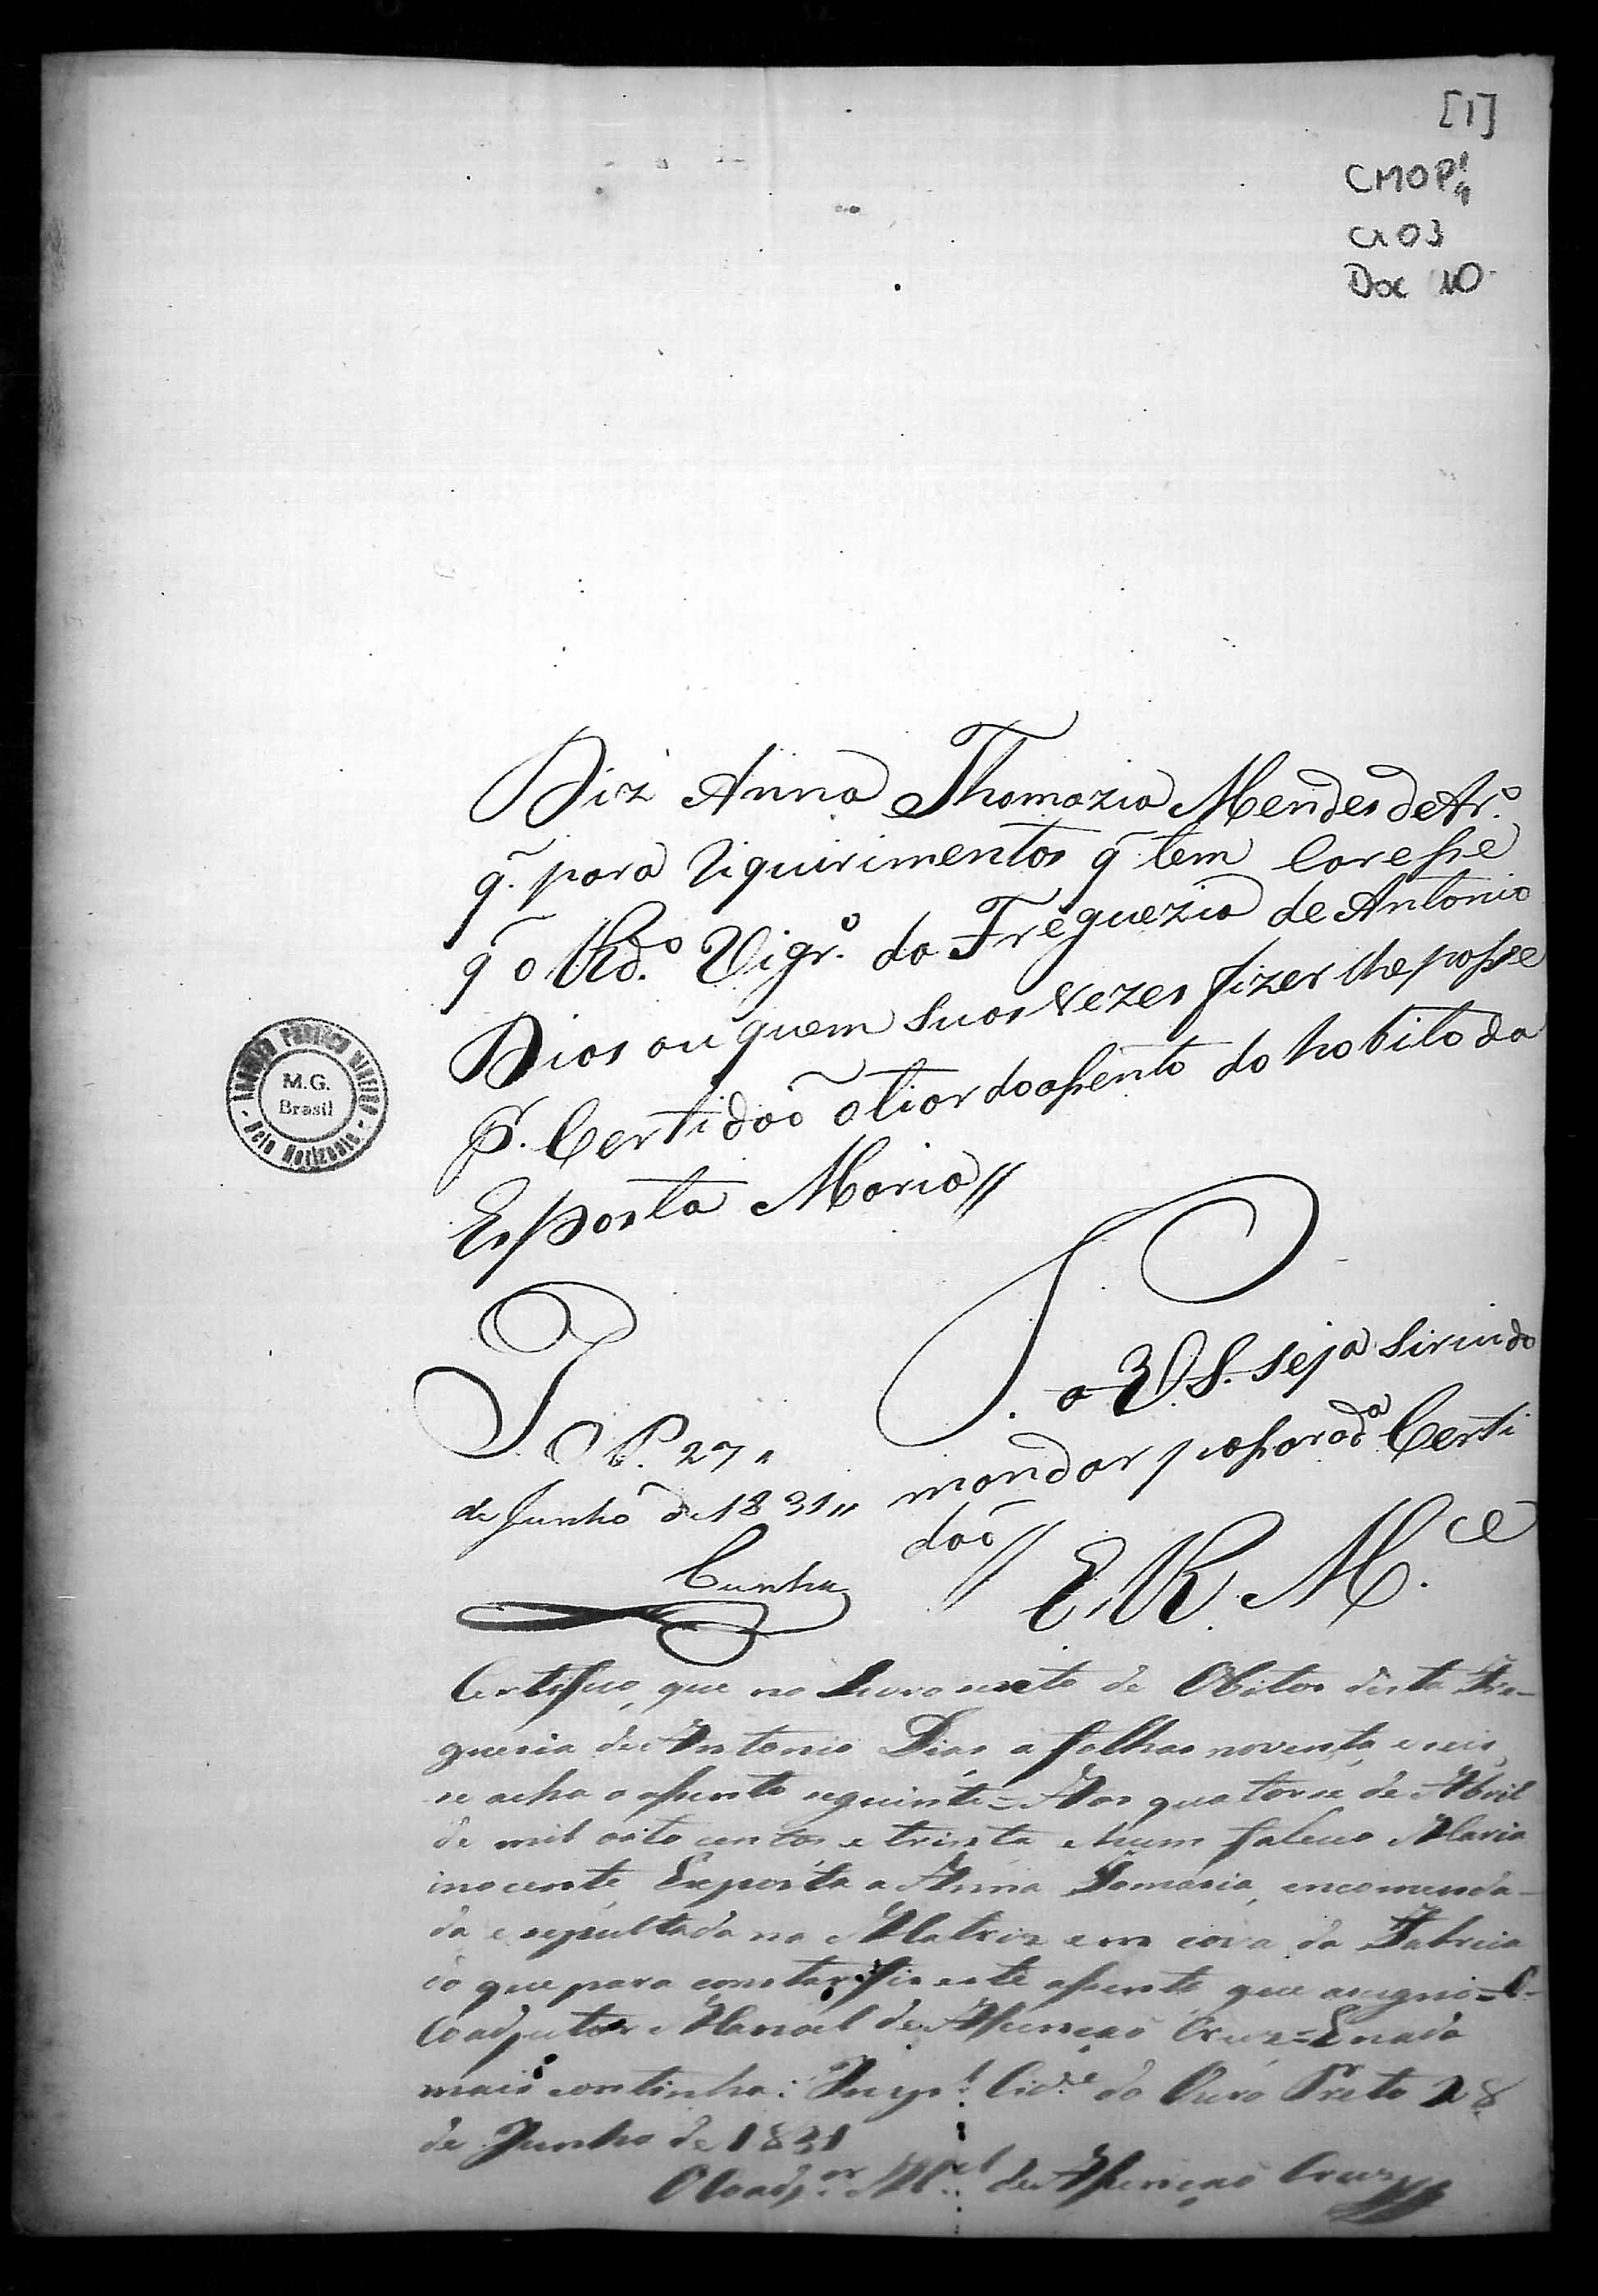 [1]
CMOP
cx 03
Doc 10
Diz Anna Thomazia Mendes de Ar.º
q̃. para riquirimentos q̃ tem caresse
q̃ o Rd.º Vigr.º da Freguezia de Antonio
Dias ou quem suas vezes fizer lhe passe
p. Certidaõ o tior do assento do hobito da
Exposta Maria//
ARQUIVO PUBLICO MINEIRO
M.G.
Brasil
Belo Horizonte
P. a V. S. seja sirvido
mandar passar a d.ª Certi
daõ//
E. R. M.ce
P. O. P. 27
de Junho de 1831
Cunha
Certifico, que no Livro sexto de Obitos desta Fre-
guesia de Antonio Dias a folhas noventa, e seis,
se acha o assento seguinte = Aos quatorse de Abril
de mil oito centos e trinta e hum faleceo Maria
inocente, Exposta a Anna Tomasia, encomenda-
da e sepultada na Matriz em cova da Fabrica
do que para constar fis este assento que asigno = O
Coadjutor Manoel de Assunçaõ Cruz = E nada
mais continha: Imp.l Cid.e do Ouro Preto 28
de Junho de 1831
O Coadj.or M.el de Assunçaõ Cruz